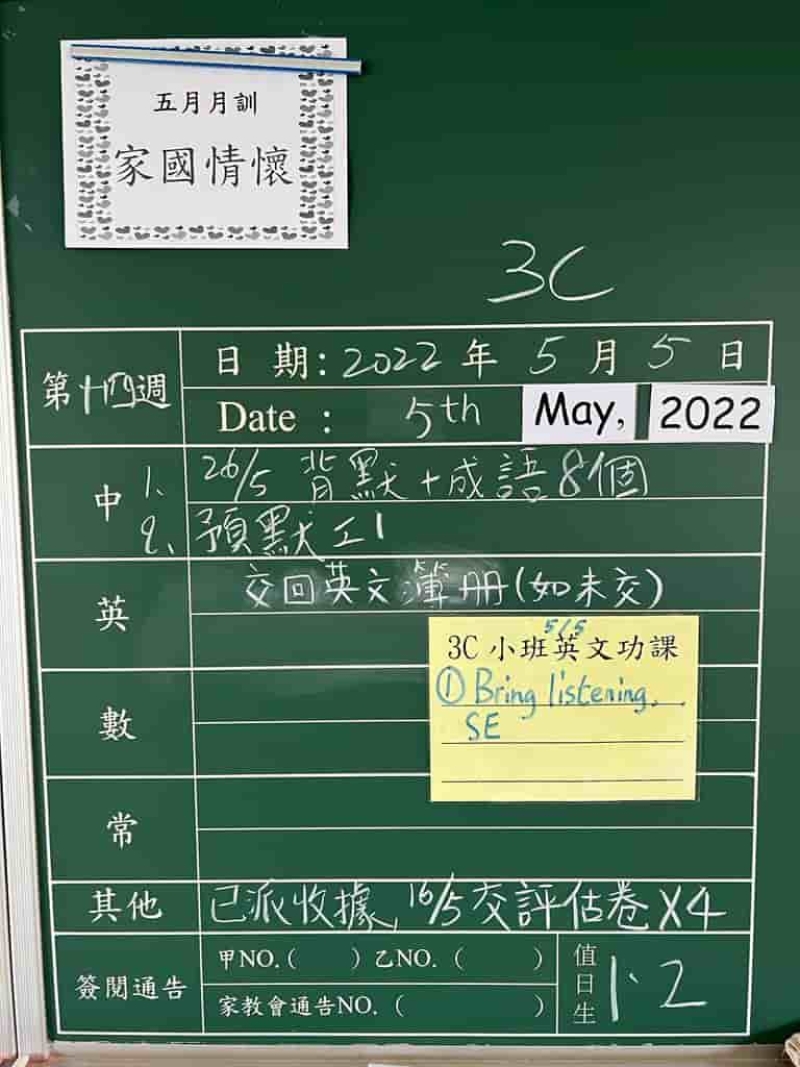 五月月訓
家國情懷
3C
第十四週
日 期：2022 年 5 月 5 日
Date : 5th May, 2022
中
1. 26/5 背默+成語8個
2. 預默工1
英
交回英文簿冊(如未交)
5/5
3C 小班英文功課
① Bring listening,
SE
數
常
其他
已派收據, 16/5交評估卷X4
簽閱通告
甲NO.( ) 乙NO. ( )
家教會通告NO. ( )
值日生
1、2